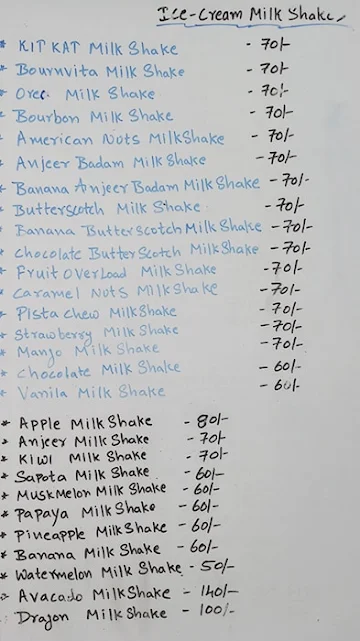 Ice-Cream Milk Shake
* KIT KAT Milk Shake - 70/-
* Bournvita Milk Shake - 70/-
* Oreo Milk Shake - 70/-
* Bourbon Milk Shake - 70/-
* American Nots MilkShake - 70/-
* Anjeer Badam Milk Shake - 70/-
* Banana Anjeer Badam Milk Shake - 70/-
* Butterscotch Milk Shake - 70/-
* Banana Butterscotch Milk Shake - 70/-
* Chocolate ButterScotch MilkShake - 70/-
* Fruit OverLoad Milk Shake - 70/-
* Caramel Nots Milk Shake - 70/-
* Pista chew Milk Shake - 70/-
* Strawberry Milk Shake - 70/-
* Mango Milk Shake - 70/-
* Chocolate Milk Shake - 60/-
* Vanila Milk Shake - 60/-
* Apple Milk Shake - 80/-
* Anjeer Milk Shake - 70/-
* Kiwi Milk Shake - 70/-
* Sapota Milk Shake - 60/-
* MuskMelon Milk Shake - 60/-
* Papaya Milk Shake - 60/-
* Pineapple Milk Shake - 60/-
* Banana Milk Shake - 60/-
* Watermelon Milk Shake - 50/-
* Avacado Milk Shake - 140/-
Dragon Milk Shake - 100/-